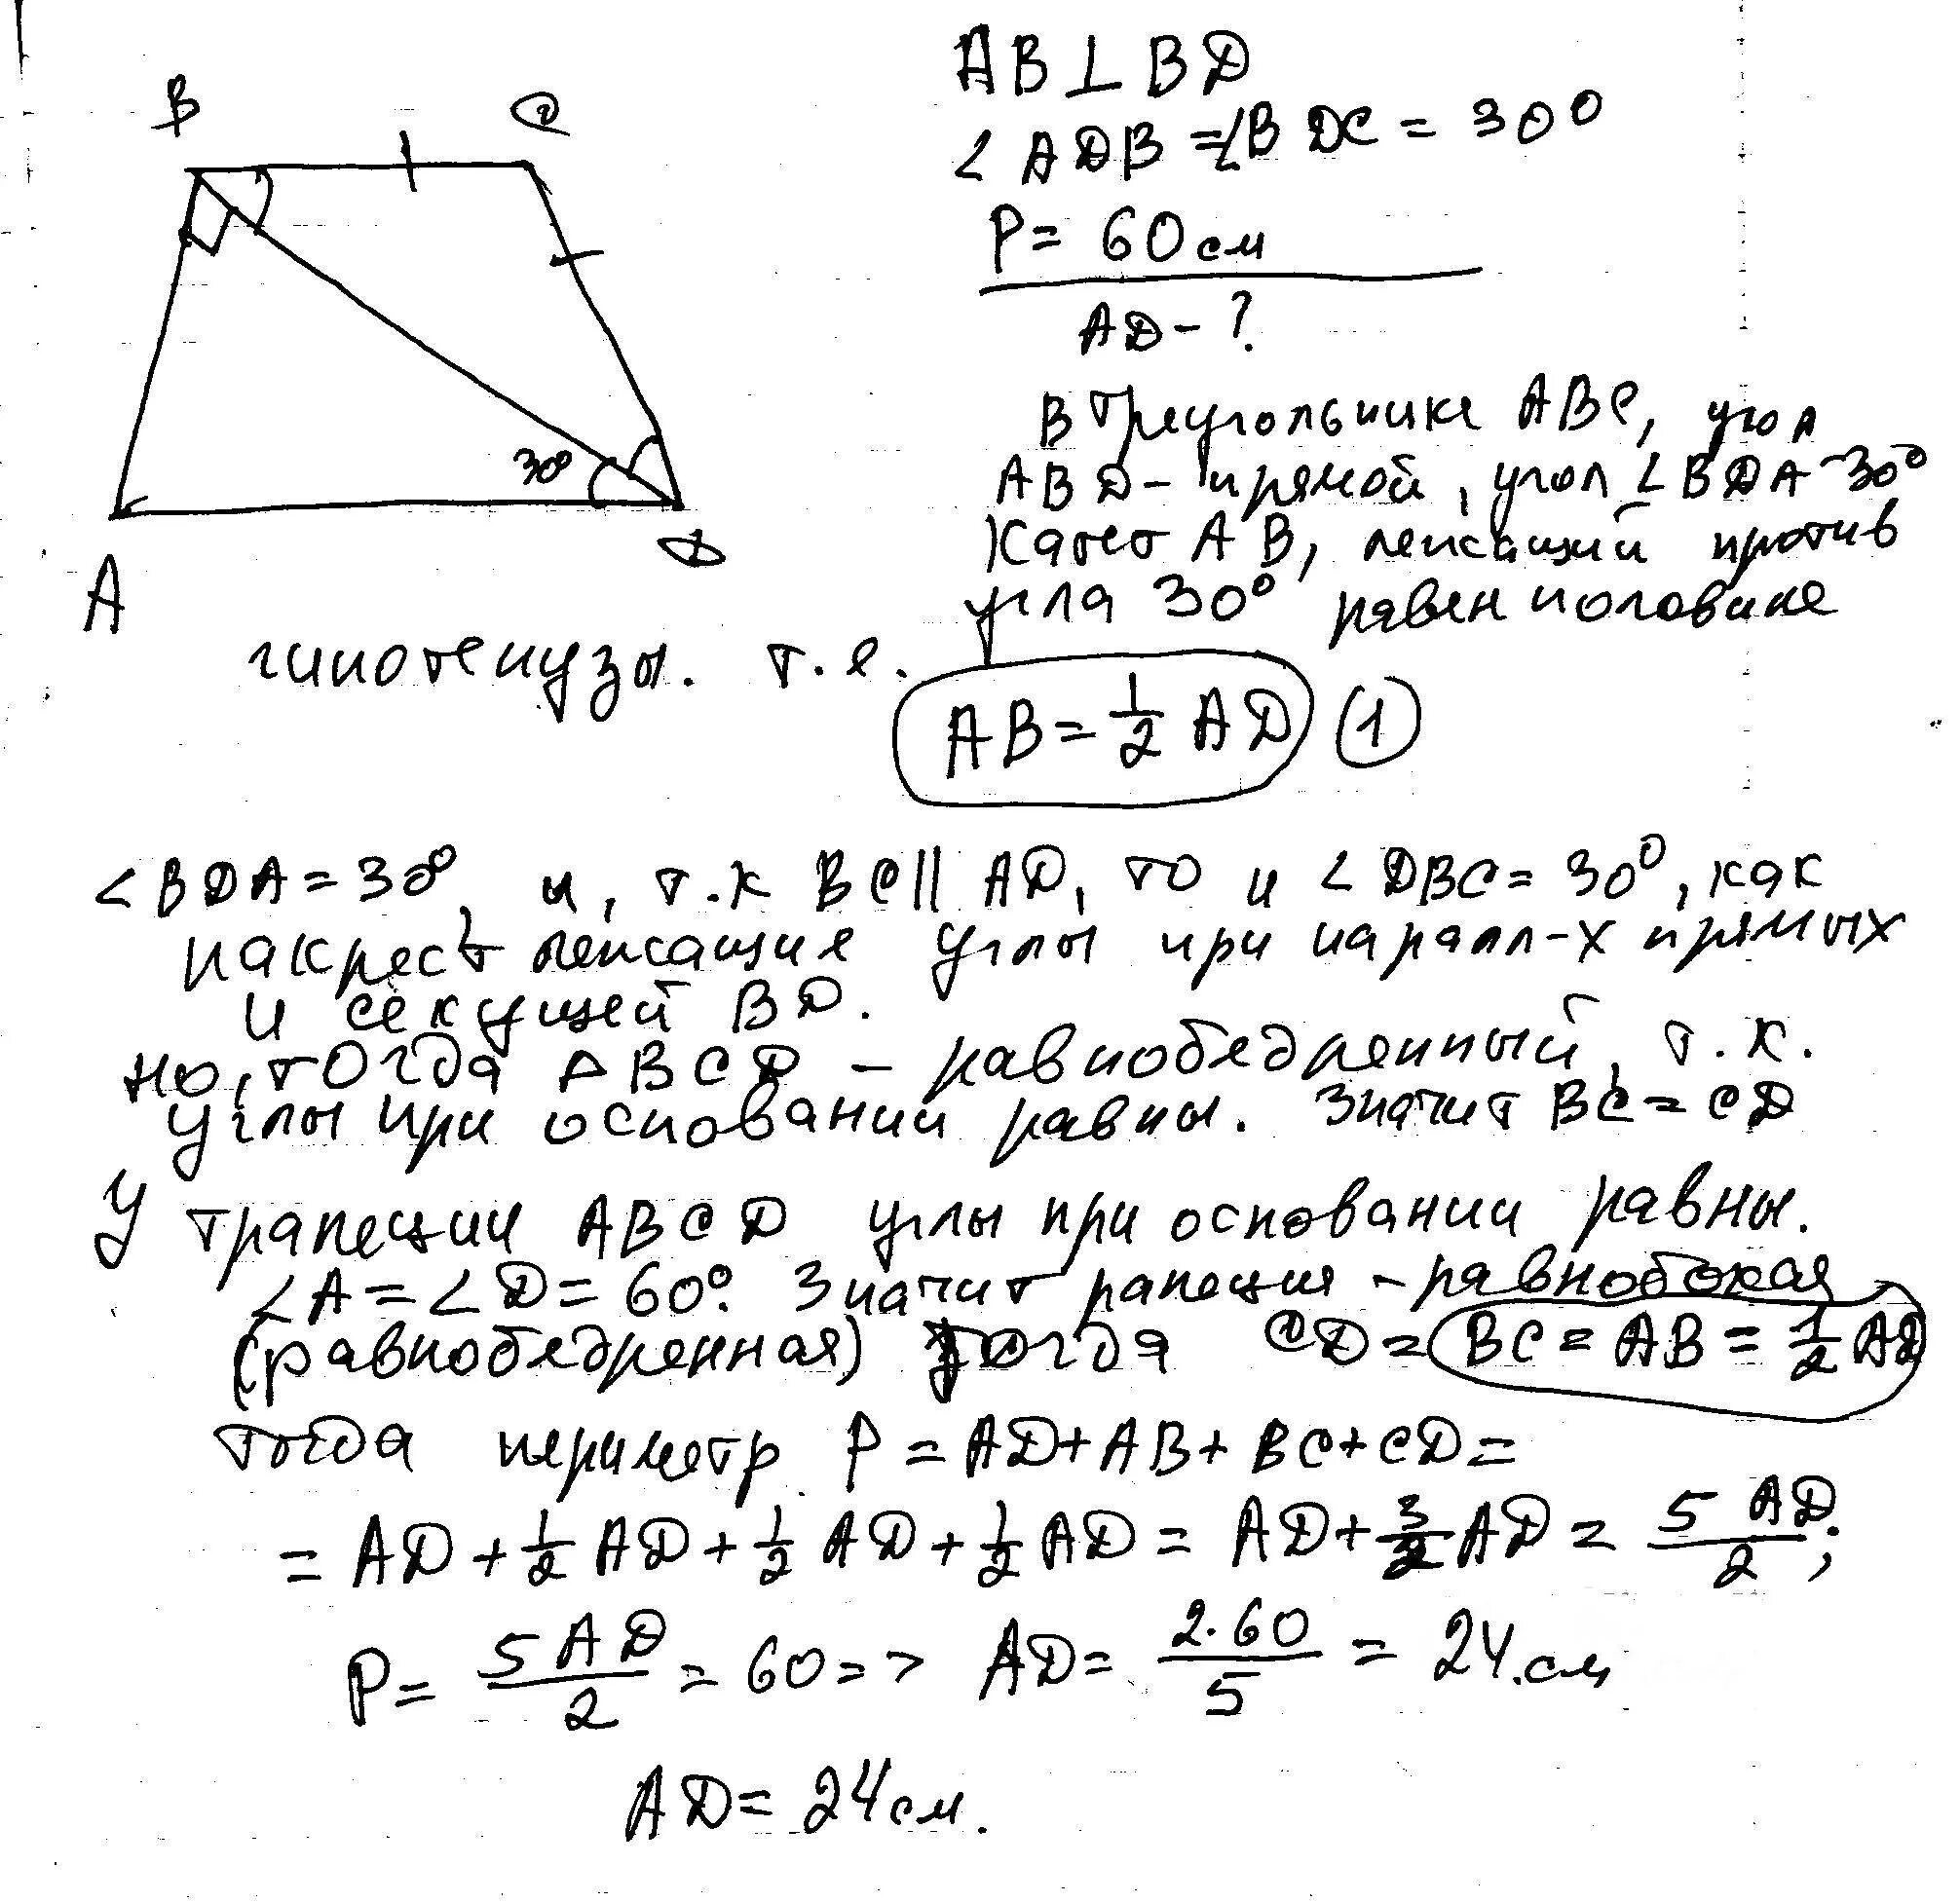 B C
AB⊥BD
∠ADB=∠BDC=30°
P=60см
AD-?
30°
A D
В треугольнике ABC, угол
ABD- прямой, угол ∠BDA-30°
Катет AB, лежащий против
угла 30° равен половине
гипотенузы. т.е.
AB=½AD (1)
∠BDA=30°, и, т.к BC∥AD, то и ∠DBC=30°, как
накрест лежащие углы при паралл-х прямых
и секущей BD.
но, тогда ΔBCD - равнобедренный, т.к.
углы при основании равны. Значит BC=CD
У трапеции ABCD углы при основании равны.
∠A=∠D=60°. Значит рапеция - равнобокая
(равнобедренная) Тогда CD=BC=AB=½AD
тогда периметр P=AD+AB+BC+CD=
=AD+½AD+½AD+½AD=AD+3/2AD=5AD/2;
P=5AD/2=60=> AD=2·60/5=24.см
AD=24см.